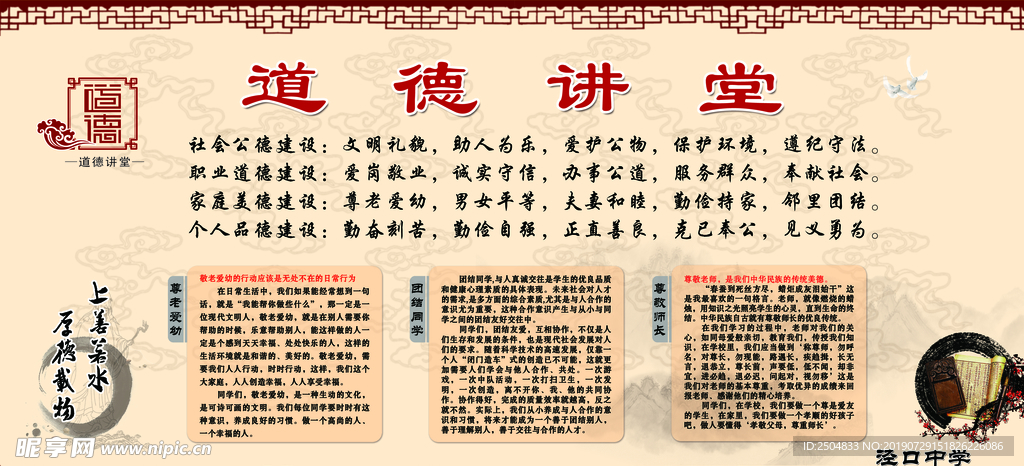 道德讲堂
道德
—道德讲堂—
社会公德建设：文明礼貌，助人为乐，爱护公物，保护环境，遵纪守法。
职业道德建设：爱岗敬业，诚实守信，办事公道，服务群众，奉献社会。
家庭美德建设：尊老爱幼，男女平等，夫妻和睦，勤俭持家，邻里团结。
个人品德建设：勤奋刻苦，勤俭自强，正直善良，克己奉公，见义勇为。
上善若水
厚德载物
尊老爱幼
敬老爱幼的行动应该是无处不在的日常行为
在日常生活中，我们如果能经常想到一句
话，就是“我能帮你做些什么”，那一定是一
位现代文明人，敬老爱幼，就是在别人需要你
帮助的时候，乐意帮助别人，能这样做的人一
定是个感到天天幸福、处处快乐的人，这样的
生活环境就是和谐的、美好的。敬老爱幼，需
要我们人人行动，时时行动，这样，我们这个
大家庭，人人创造幸福，人人享受幸福。
同学们，敬老爱幼，是一种生动的文化，
是可诗可画的文明。我们每位同学要时时有这
种意识，养成良好的习惯。做一个高尚的人、
一个幸福的人。
团结同学
团结同学,与人真诚交往是学生的优良品质
和健康心理素质的具体表现。未来社会对人才
的需求,是多方面的综合素质,尤其是与人合作的
意识尤为重要，这种合作意识产生与从小与同
学之间的团结友好交往中。
同学们，团结友爱，互相协作，不仅是人
们生存和发展的条件，也是现代社会发展对人
们的要求。随着科学技术的高速发展，仅靠一
个人“闭门造车”式的创造已不可能，这就更
加需要人们学会与他人合作、共处。一次游
戏，一次中队活动，一次打扫卫生，一次发
明，一次创造，离不开你、我、他的共同协
作。协作得好，完成的质量效率就越高，反之
就不然。实际上，我们从小养成与人合作的意
识和习惯，将来才能成为一个善于团结别人，
善于理解别人，善于交往与合作的人才。
尊敬师长
尊敬老师，是我们中华民族的传统美德。
“春蚕到死丝方尽，蜡炬成灰泪始干”这
是我最喜欢的一句格言。老师，就像燃烧的蜡
烛，用知识之光照亮学生的心灵，直到生命的终
结。中华民族自古就有尊敬师长的优良传统。
在我们学习的过程中，老师对我们的关
心，如同母爱般亲切，教育我们，传授我们知
识，在学校里，我们应当做到‘称尊师，勿呼
名，对尊长，勿现能，路遇长，疾趋揖，长无
言，退恭立，尊长言，声要低，低不闻，却非
宜，进必趋，退必迟，问起对，视勿移’这是
我们对老师的基本尊重，考取优异的成绩来回
报老师，感谢他们的精心培养。
同学们，在学校，我们要做一个尊是爱友
的学生，在家里，我们要做一个孝顺的好孩子
吧，做人要懂得‘孝敬父母，尊重师长’。
泾口中学
昵享网 www.nipic.cn
ID:2504833 NO:20190729151826226086